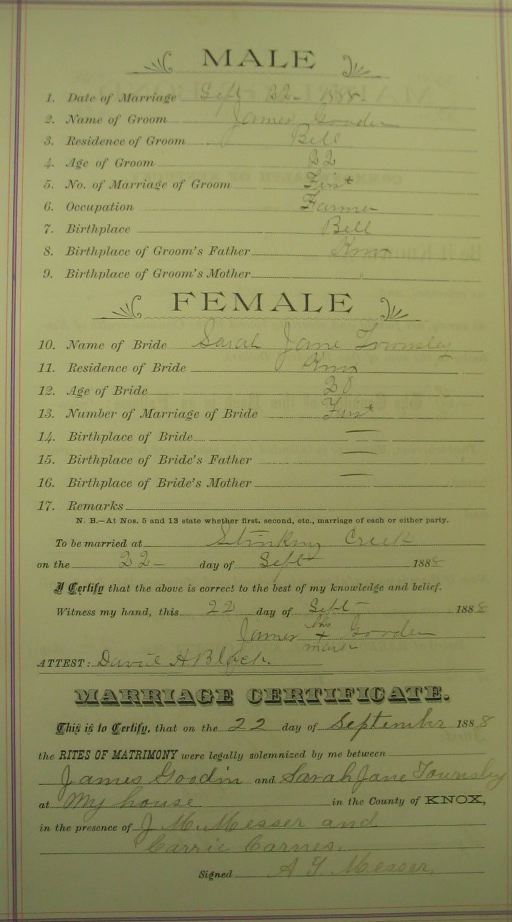 MALE
1. Date of Marriage Sept 22 1888
2. Name of Groom James Gooden
3. Residence of Groom Bell
4. Age of Groom 22
5. No. of Marriage of Groom First
6. Occupation Farmer
7. Birthplace Bell
8. Birthplace of Groom's Father Knox
9. Birthplace of Groom's Mother
FEMALE
10. Name of Bride Sarah Jane Townsley
11. Residence of Bride Knox
12. Age of Bride 20
13. Number of Marriage of Bride First
14. Birthplace of Bride —
15. Birthplace of Bride's Father —
16. Birthplace of Bride's Mother —
17. Remarks
N. B.—At Nos. 5 and 13 state whether first, second, etc., marriage of each or either party.
To be married at Stinking Creek
on the 22 day of Sept 1888
I Certify that the above is correct to the best of my knowledge and belief.
Witness my hand, this 22 day of Sept 1888
James his + mark Gooden
ATTEST: David H Block
MARRIAGE CERTIFICATE.
This is to Certify, that on the 22 day of September 1888
the RITES OF MATRIMONY were legally solemnized by me between
James Goodin and Sarah Jane Townsley
at My house in the County of KNOX,
in the presence of J M Messer and
Carrie Carnes.
Signed Messer,